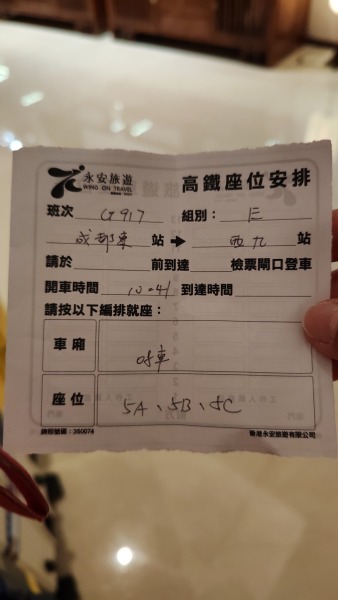 永安旅遊
WING ON TRAVEL
高鐵座位安排
班次 G917 組別: E
成都東 站 → 西九 站
請於 前到達 檢票閘口登車
開車時間 10:41 到達時間
請按以下編排就座:
車廂 08車
座位 5A、5B、5C
香港永安旅遊有限公司